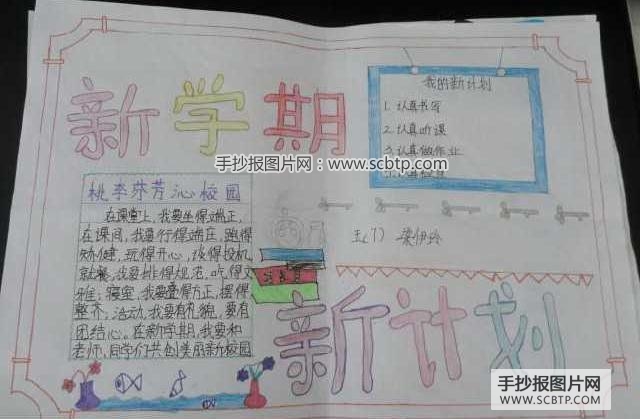 新学期
我的新计划
1. 认真书写
2. 认真听课
3. 认真做作业
手抄报图片网：www.scbtp.com
桃李芬芳沁校园
在课堂上,我要坐得端正,
在课间,我要行得端庄,跑得
矫健,玩得开心,谈得投机
就餐,我要排得规范,吃得文
雅;寝室,我要叠得方正,摆得
整齐;活动,我要有礼貌,要有
团结心。在新学期,我要和
老师,同学们共创美丽新校园
梁伊玲
新计划
手抄报图片网
WWW.SCBTP.COM